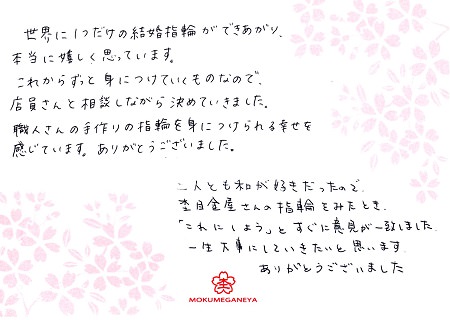 世界に1つだけの結婚指輪ができあがり、
本当に嬉しく思っています。
これからずっと身につけていくものなので、
店員さんと相談しながら決めていきました。
職人さんの手作りの指輪を身につけられる幸せを
感じています。ありがとうございました。
二人とも和が好きだったので、
杢目金屋さんの指輪をみたとき、
「これにしよう」とすぐに意見が一致しました。
一生大事にしていきたいと思います。
ありがとうございました
MOKUMEGANEYA